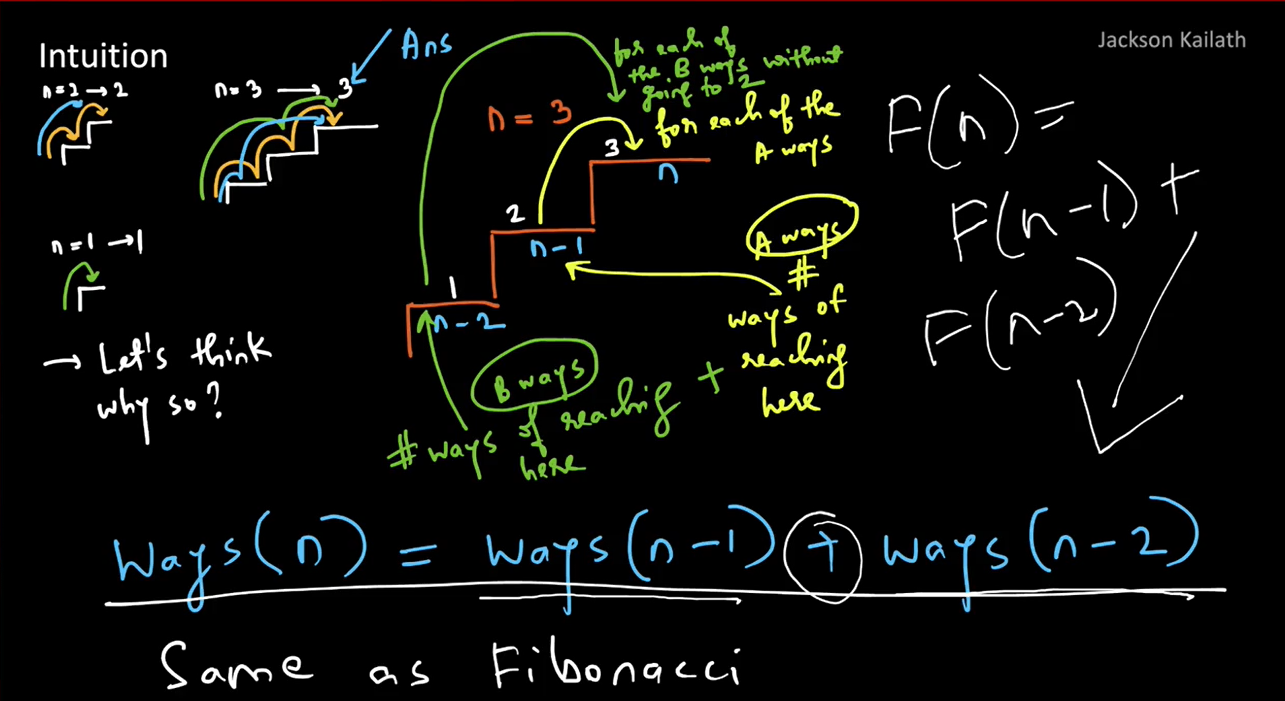 Intuition
Jackson Kailath
n=2 → 2
n=3 → 3
Ans
n=1 → 1
→ Let's think
why so?
for each of
the B ways without
going to 2
n = 3
for each of the
A ways
3
n
2
n-1
1
n-2
A ways
#
ways of
reaching
here
B ways
# ways of reaching +
here
F(n) =
F(n-1) +
F(n-2)
Ways(n) = ways(n-1) + ways(n-2)
Same as Fibonacci